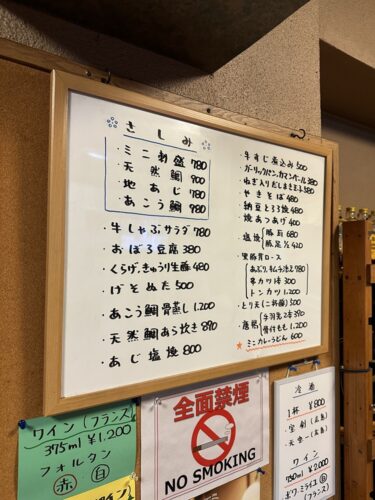 さしみ
・ミニ刺盛 780
・天然鯛 900
・地あじ 780
・あこう鯛 980
・牛しゃぶサラダ 780
・おぼろ豆腐 380
・くらげ、きゅうり生酢 480
・げそぬた 500
・あこう鯛骨蒸し 1,200
・天然鯛あら炊き 890
・あじ塩焼 800
・牛すじ煮込み 500
・ねぎ入りだしまき玉子 580
・やきそば 480
・納豆とろろ焼 480
・焼あつあげ 400
・塩焼 豚耳 680
豚足 1/2 420
・黒豚肩ロース
あぶり、キムチ冷 780
串カツ 1本 300
トンカツ 1,200
・とり天(二杯酢) 500
・唐揚 手羽先 2本 390
骨付もも 1,200
ミニカレーうどん 600
ワイン(フランス)
375ml ¥1,200
フォルタン
赤 白
全面禁煙
NO SMOKING
冷酒
1杯 ¥800
ワイン
750ml ¥2,000
(フランス)